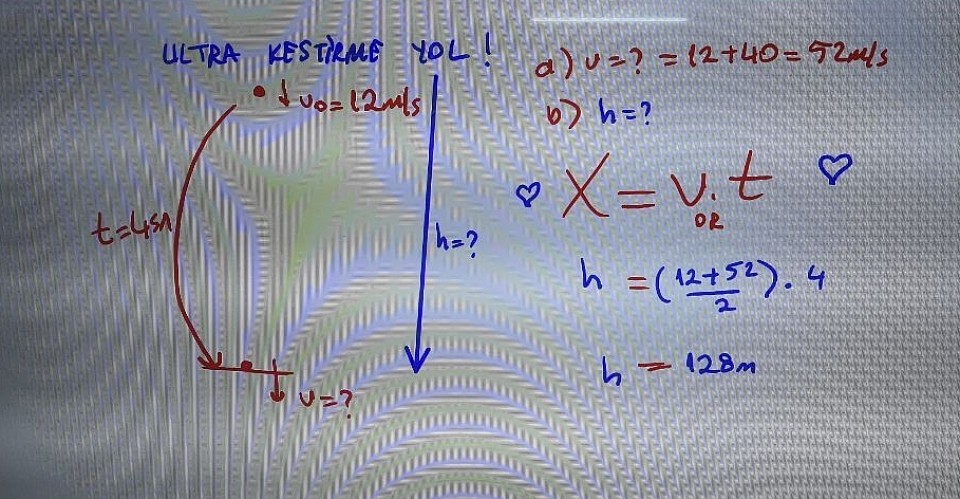 ULTRA KESTİRME YOL!
↓ v₀ = 12m/s
t=4sn
h=?
v=?
a) v=? = 12+40 = 52m/s
b) h=?
♡ X = v.t ♡
OR
h = (12+52/2).4
h = 128m